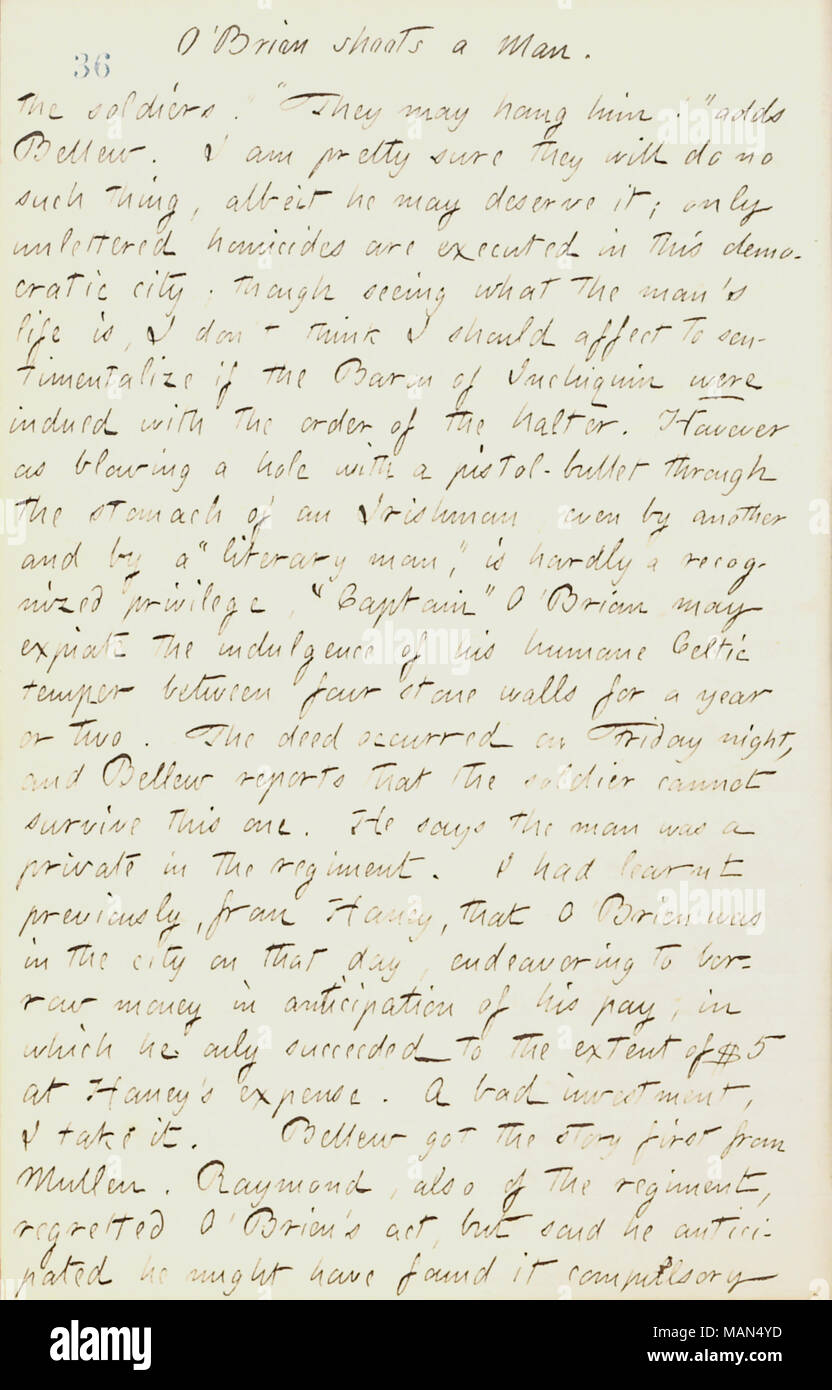 O'Brian shoots a Man.
36
the soldiers." "They may hang him!" adds
Bellew. I am pretty sure they will do no
such thing, albeit he may deserve it; only
unlettered homicides are executed in this demo-
cratic city; though seeing what the man's
life is, I don't think I should affect to sen-
timentalize if the Baron of Inchiquin were
indued with the order of the halter. However
as blowing a hole with a pistol-bullet through
the stomach of an Irishman even by another
and by a "literary man," is hardly a recog-
nized privilege, "Captain" O'Brian may
expiate the indulgence of his humane Celtic
temper between four stone walls for a year
or two. The deed occurred on Friday night,
and Bellew reports that the soldier cannot
survive this one. He says the man was a
private in the regiment. I had learnt
previously, from Haney, that O'Brien was
in the city on that day, endeavering to bor-
row money in anticipation of his pay; in
which he only succeeded to the extent of $5
at Haney's expense. A bad investment,
I take it. Bellew got the story first from
Mullen. Raymond, also of the regiment,
regretted O'Brien's act, but said he antici-
pated he might have found it compulsory
alamy
Image ID: MAN4YD
www.alamy.com